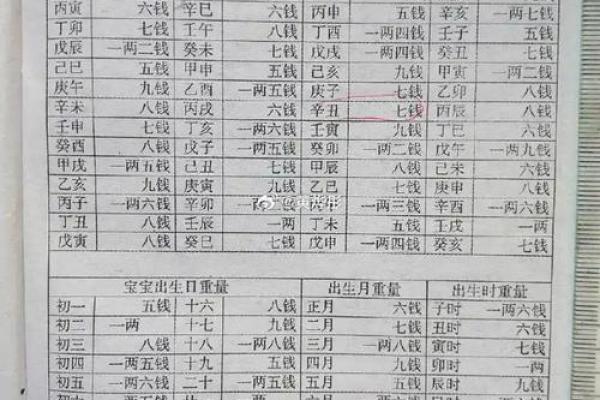 丙寅 六钱 辛巳 六钱 丙申 五钱 辛亥 一两七钱
丁卯 七钱 壬午 八钱 丁酉 一两四钱 壬子 五钱
戊辰 一两二钱 癸未 七钱 戊戌 一两四钱 癸丑 七钱
己巳 五钱 甲申 五钱 己亥 九钱 甲寅 一两二钱
庚午 九钱 乙酉 一两五钱 庚子 七钱 乙卯 八钱
辛未 八钱 丙戌 六钱 辛丑 七钱 丙辰 八钱
壬申 七钱 丁亥 一两六钱 壬寅 九钱 丁巳 六钱
癸酉 八钱 戊子 一两五钱 癸卯 一两二钱 戊午 一两九钱
甲戌 一两五钱 己丑 七钱 甲辰 八钱 己未 六钱
乙亥 九钱 庚寅 九钱 乙巳 七钱 庚申 八钱
丙子 一两六钱 辛卯 一两三钱 辛酉 一两六钱
丁丑 八钱 壬辰 一两 丁未 五钱 壬戌 一两
戊寅 八钱 癸巳 七钱 戊申 一两四钱 癸亥 七钱
宝宝出生日重量 出生月重量 出生时重量
初一 五钱 十六 八钱 正月 六钱 子时 一两六钱
初二 一两 十七 九钱 二月 七钱 丑时 六钱
初三 八钱 十八 一两八钱 三月 一两八钱 寅时 七钱
初四 一两五钱 十九 五钱 四月 九钱 卯时 一两
初五 一两六钱 二十 一两五钱 五月 五钱 辰时 九钱